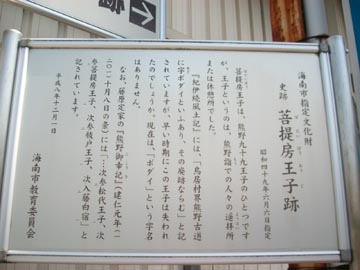 跡
海南市指定文化財
史跡 菩提房王子跡
昭和四十九年六月六日指定
菩提房王子は、熊野九十九王子のひとつです
が、王子というのは、熊野詣での人々の遥拝所
または休憩所でした。
『紀伊続風土記』には、「鳥居村界熊野古道
に字ボダイといふあり、その廃跡ならむ」と記
されていますが、早い時期にこの王子は失われ
たのでしょうか。現在は、「ボダイ」という字名
はありません。
なお、藤原定家の『熊野御幸記』(建仁元年=一
二〇一十月八日の条)には「次参松代王子、次
参菩提房王子、次参祓戸王子、次入藤白宿」と
記されています。
平成八年十二月一日
海南市教育委員会